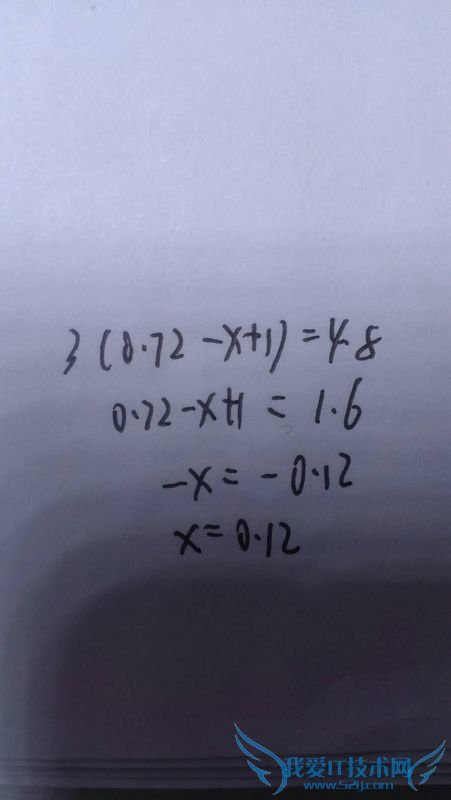 3(0.72-x+1)=4.8
0.72-x+1=1.6
-x=-0.12
x=0.12
我爱IT技术网
www.52ij.com